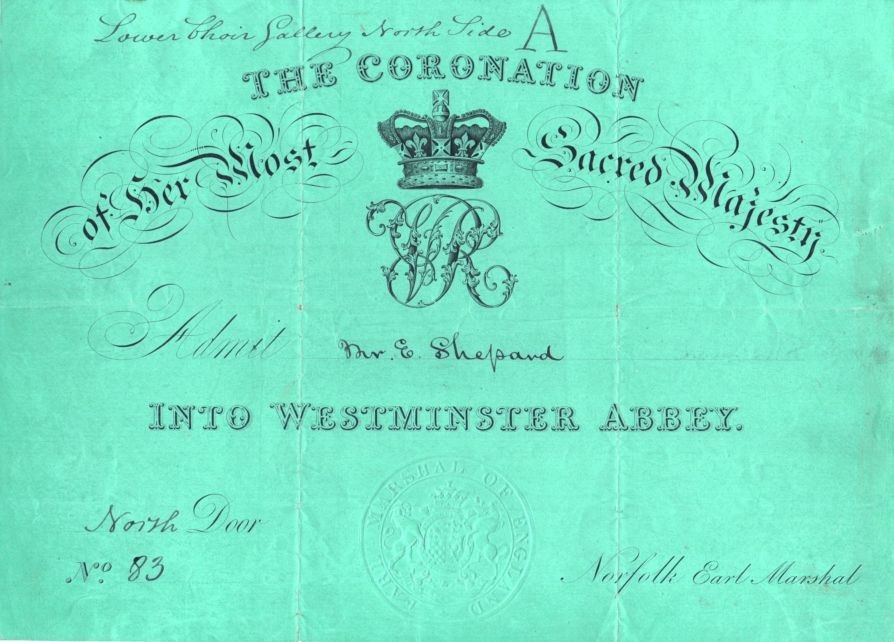 Lower Choir Gallery North Side A
THE CORONATION
of Her Most Sacred Majesty
VR
Admit Mr. E. Shepard
INTO WESTMINSTER ABBEY.
North Door
No. 83
EARL MARSHAL OF ENGLAND
Norfolk Earl Marshal